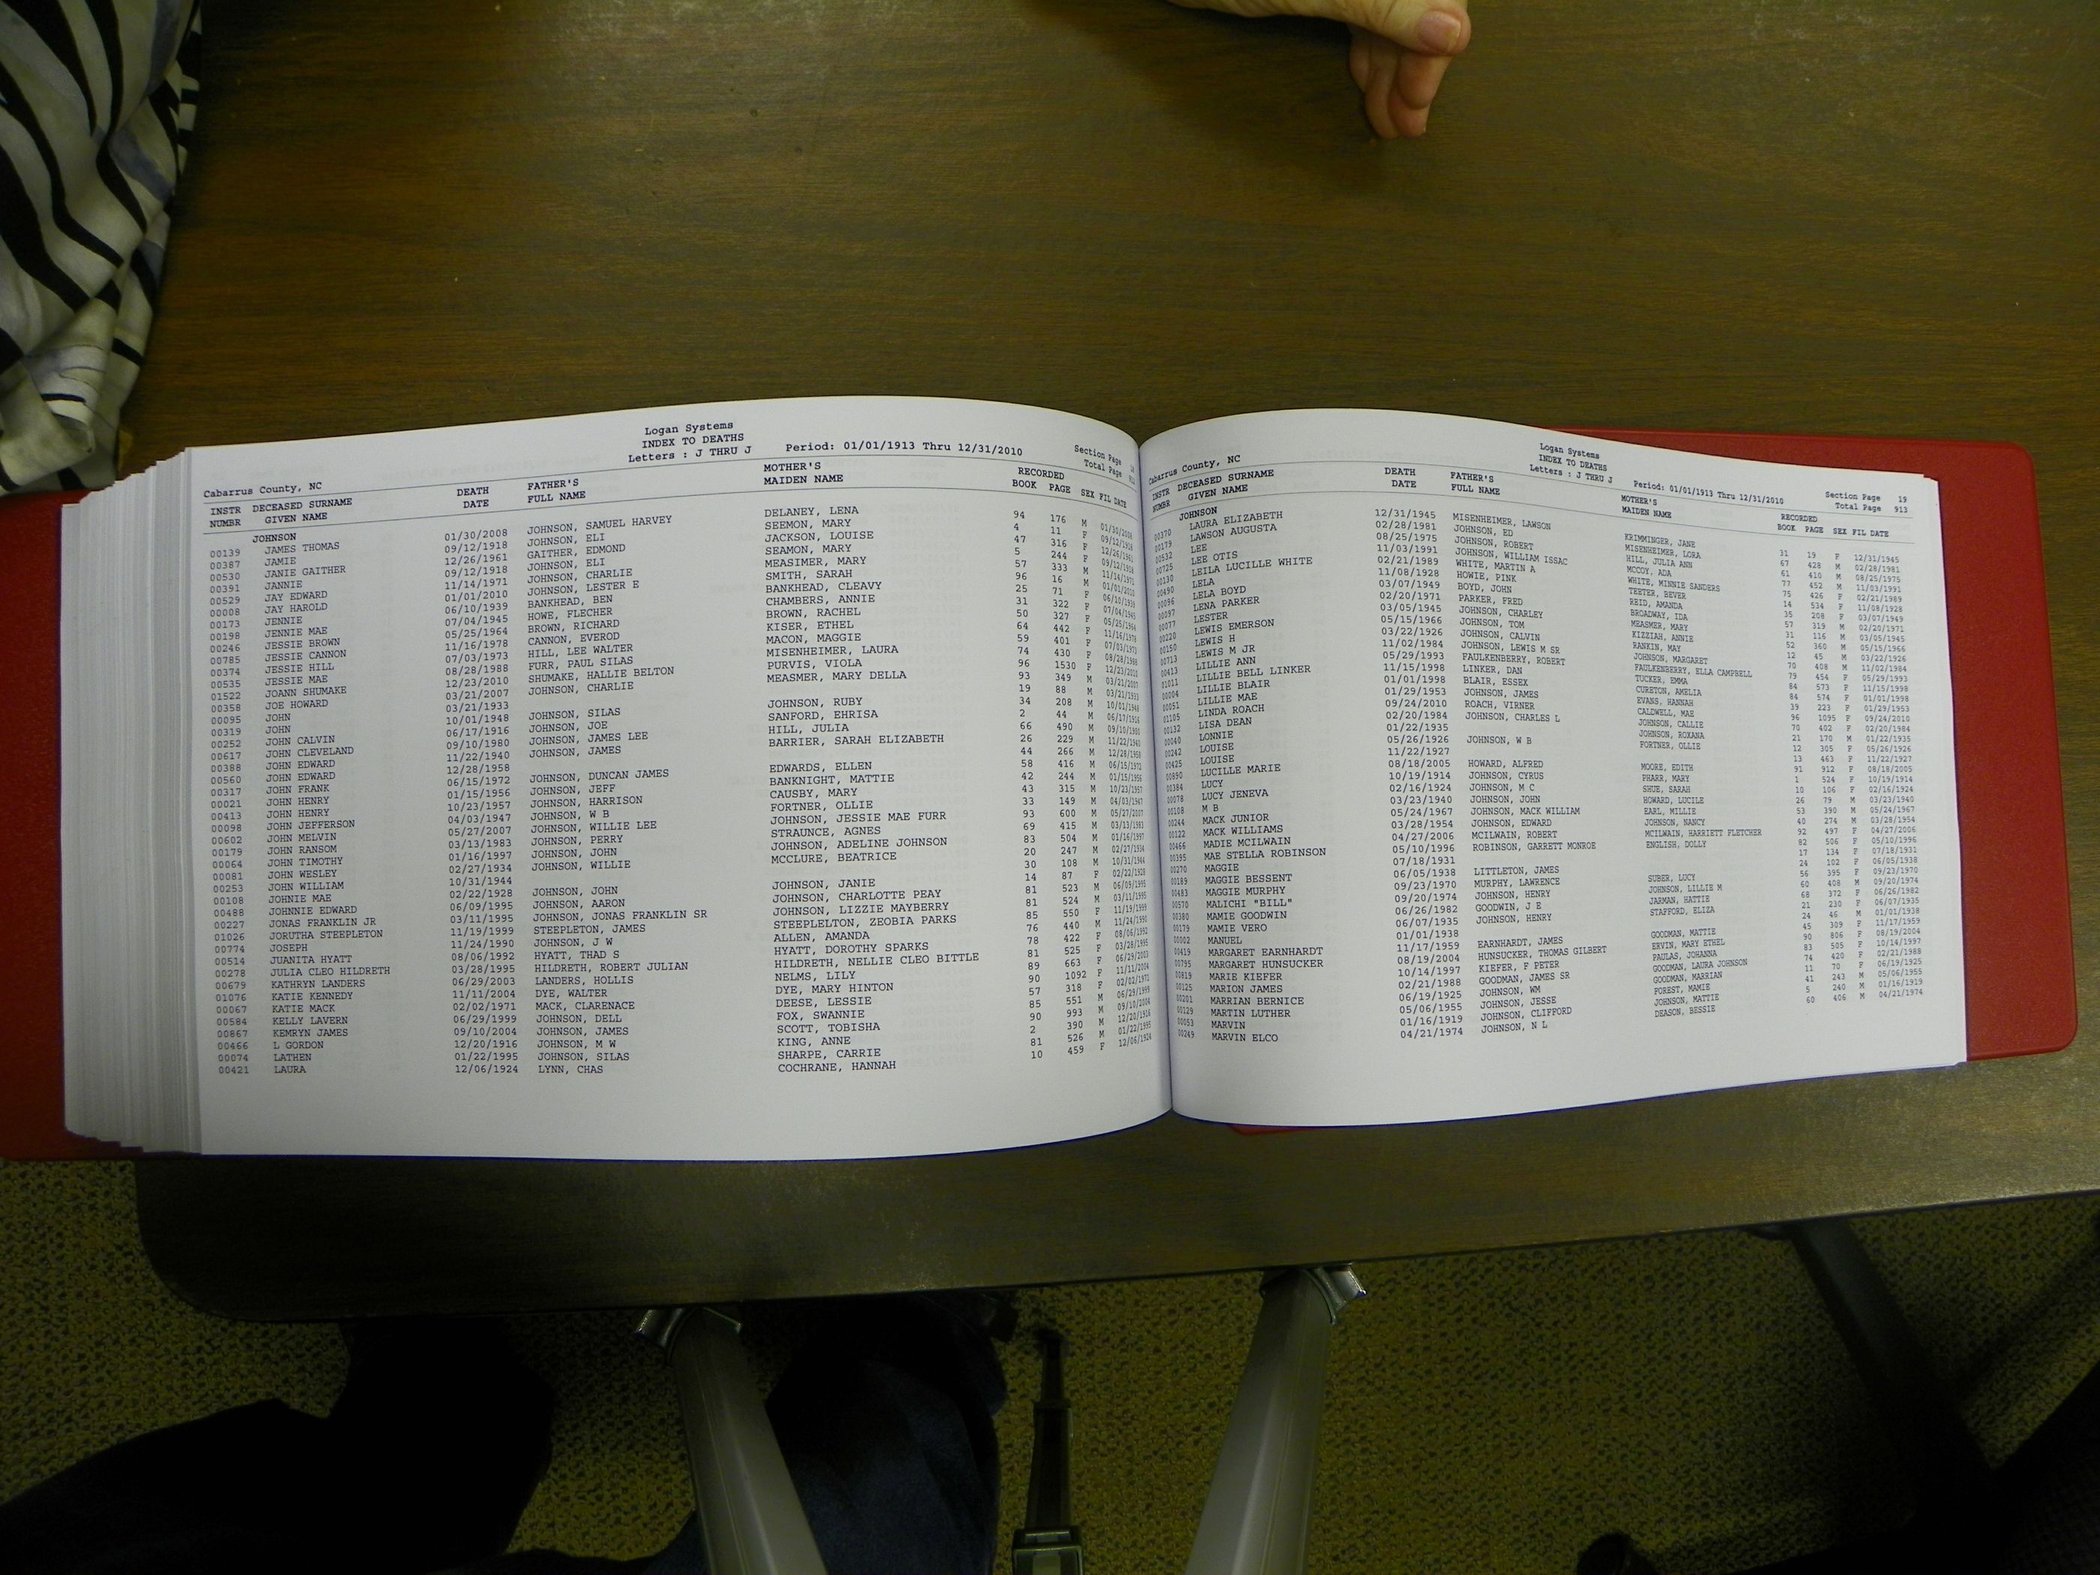 Logan Systems
INDEX TO DEATHS
Cabarrus County, NC Letters : J THRU J Period: 01/01/1913 Thru 12/31/2010 Section Page
Total Page
INSTR DECEASED SURNAME DEATH FATHER'S MOTHER'S RECORDED
NUMBR GIVEN NAME DATE FULL NAME MAIDEN NAME BOOK PAGE SEX FIL DATE
JOHNSON
00139 JAMES THOMAS 01/30/2008 JOHNSON, SAMUEL HARVEY DELANEY, LENA 94 176 M 01/30/2008
00387 JAMIE 09/12/1918 JOHNSON, ELI SEEMON, MARY 4 11 F 09/12/1918
00530 JANIE GAITHER 12/26/1961 GAITHER, EDMOND JACKSON, LOUISE 47 316 F 12/26/1961
00391 JANNIE 09/12/1918 JOHNSON, ELI SEAMON, MARY 5 244 F 09/12/1918
00529 JAY EDWARD 11/14/1971 JOHNSON, CHARLIE MEASIMER, MARY 57 333 M 11/14/1971
00008 JAY HAROLD 01/01/2010 JOHNSON, LESTER E SMITH, SARAH 96 16 M 01/01/2010
00173 JENNIE 06/10/1939 BANKHEAD, BEN BANKHEAD, CLEAVY 25 71 F 06/10/1939
00198 JENNIE MAE 07/04/1945 HOWE, FLECHER CHAMBERS, ANNIE 31 322 F 07/04/1945
00246 JESSIE BROWN 05/25/1964 BROWN, RICHARD BROWN, RACHEL 50 327 F 05/25/1964
00785 JESSIE CANNON 11/16/1978 CANNON, EVEROD KISER, ETHEL 64 442 F 11/16/1978
00374 JESSIE HILL 07/03/1973 HILL, LEE WALTER MACON, MAGGIE 59 401 F 07/03/1973
00535 JESSIE MAE 08/28/1988 FURR, PAUL SILAS MISENHEIMER, LAURA 74 430 F 08/28/1988
01522 JOANN SHUMAKE 12/23/2010 SHUMAKE, HALLIE BELTON PURVIS, VIOLA 96 1530 F 12/23/2010
00358 JOE HOWARD 03/21/2007 JOHNSON, CHARLIE MEASMER, MARY DELLA 93 349 M 03/21/2007
00095 JOHN 03/21/1933 19 88 M 03/21/1933
00319 JOHN 10/01/1948 JOHNSON, SILAS JOHNSON, RUBY 34 208 M 10/01/1948
00252 JOHN CALVIN 06/17/1916 JOHNSON, JOE SANFORD, EHRISA 2 44 M 06/17/1916
00617 JOHN CLEVELAND 09/10/1980 JOHNSON, JAMES LEE HILL, JULIA 66 490 M 09/10/1980
00388 JOHN EDWARD 11/22/1940 JOHNSON, JAMES BARRIER, SARAH ELIZABETH 26 229 M 11/22/1940
00560 JOHN EDWARD 12/28/1958 44 266 M 12/28/1958
00317 JOHN FRANK 06/15/1972 JOHNSON, DUNCAN JAMES EDWARDS, ELLEN 58 416 M 06/15/1972
00021 JOHN HENRY 01/15/1956 JOHNSON, JEFF BANKNIGHT, MATTIE 42 244 M 01/15/1956
00413 JOHN HENRY 10/23/1957 JOHNSON, HARRISON CAUSBY, MARY 43 315 M 10/23/1957
00098 JOHN JEFFERSON 04/03/1947 JOHNSON, W B FORTNER, OLLIE 33 149 M 04/03/1947
00602 JOHN MELVIN 05/27/2007 JOHNSON, WILLIE LEE JOHNSON, JESSIE MAE FURR 93 600 M 05/27/2007
00179 JOHN RANSOM 03/13/1983 JOHNSON, PERRY STRAUNCE, AGNES 69 415 M 03/13/1983
00064 JOHN TIMOTHY 01/16/1997 JOHNSON, JOHN JOHNSON, ADELINE JOHNSON 83 504 M 01/16/1997
00081 JOHN WESLEY 02/27/1934 JOHNSON, WILLIE MCCLURE, BEATRICE 20 247 M 02/27/1934
00253 JOHN WILLIAM 10/31/1944 30 108 M 10/31/1944
00108 JOHNIE MAE 02/22/1928 JOHNSON, JOHN JOHNSON, JANIE 14 87 F 02/22/1928
00488 JOHNNIE EDWARD 06/09/1995 JOHNSON, AARON JOHNSON, CHARLOTTE PEAY 81 523 M 06/09/1995
00227 JONAS FRANKLIN JR 03/11/1995 JOHNSON, JONAS FRANKLIN SR JOHNSON, LIZZIE MAYBERRY 81 524 M 03/11/1995
01026 JORUTHA STEEPLETON 11/19/1999 STEEPLETON, JAMES STEEPLELTON, ZEOBIA PARKS 85 550 F 11/19/1999
00774 JOSEPH 11/24/1990 JOHNSON, J W ALLEN, AMANDA 76 440 M 11/24/1990
00514 JUANITA HYATT 08/06/1992 HYATT, THAD S HYATT, DOROTHY SPARKS 78 422 F 08/06/1992
00278 JULIA CLEO HILDRETH 03/28/1995 HILDRETH, ROBERT JULIAN HILDRETH, NELLIE CLEO BITTLE 81 525 F 03/28/1995
00679 KATHRYN LANDERS 06/29/2003 LANDERS, HOLLIS NELMS, LILY 89 663 F 06/29/2003
01076 KATIE KENNEDY 11/11/2004 DYE, WALTER DYE, MARY HINTON 90 1092 F 11/11/2004
00067 KATIE MACK 02/02/1971 MACK, CLARENACE DEESE, LESSIE 57 318 F 02/02/1971
00584 KELLY LAVERN 06/29/1999 JOHNSON, DELL FOX, SWANNIE 85 551 M 06/29/1999
00867 KEMRYN JAMES 09/10/2004 JOHNSON, JAMES SCOTT, TOBISHA 90 993 M 09/10/2004
00466 L GORDON 12/20/1916 JOHNSON, M W KING, ANNE 2 390 M 12/20/1916
00074 LATHEN 01/22/1995 JOHNSON, SILAS SHARPE, CARRIE 81 526 M 01/22/1995
00421 LAURA 12/06/1924 LYNN, CHAS COCHRANE, HANNAH 10 459 F 12/06/1924
Logan Systems
INDEX TO DEATHS
Cabarrus County, NC Letters : J THRU J Period: 01/01/1913 Thru 12/31/2010 Section Page 19
Total Page 913
INSTR DECEASED SURNAME DEATH FATHER'S MOTHER'S RECORDED
NUMBR GIVEN NAME DATE FULL NAME MAIDEN NAME BOOK PAGE SEX FIL DATE
JOHNSON
00370 LAURA ELIZABETH 12/31/1945 MISENHEIMER, LAWSON KRIMMINGER, JANE 31 19 F 12/31/1945
00179 LAWSON AUGUSTA 02/28/1981 JOHNSON, ED MISENHEIMER, LORA 67 428 M 02/28/1981
00532 LEE 08/25/1975 JOHNSON, ROBERT HILL, JULIA ANN 61 410 M 08/25/1975
00725 LEE OTIS 11/03/1991 JOHNSON, WILLIAM ISSAC MCCOY, ADA 77 452 M 11/03/1991
00130 LEILA LUCILLE WHITE 02/21/1989 WHITE, MARTIN A WHITE, MINNIE SANDERS 75 426 F 02/21/1989
00490 LELA 11/08/1928 HOWIE, PINK TEETER, BEVER 14 534 F 11/08/1928
00096 LELA BOYD 03/07/1949 BOYD, JOHN REID, AMANDA 35 208 F 03/07/1949
00097 LENA PARKER 02/20/1971 PARKER, FRED BROADWAY, IDA 57 319 M 02/20/1971
00077 LESTER 03/05/1945 JOHNSON, CHARLEY MEASMER, MARY 31 116 M 03/05/1945
00220 LEWIS EMERSON 05/15/1966 JOHNSON, TOM KIZZIAH, ANNIE 52 360 M 05/15/1966
00150 LEWIS H 03/22/1926 JOHNSON, CALVIN RANKIN, MAY 12 45 M 03/22/1926
00713 LEWIS M JR 11/02/1984 JOHNSON, LEWIS M SR JOHNSON, MARGARET 70 408 M 11/02/1984
00413 LILLIE ANN 05/29/1993 FAULKENBERRY, ROBERT FAULKENBERRY, ELLA CAMPBELL 79 454 F 05/29/1993
01011 LILLIE BELL LINKER 11/15/1998 LINKER, DAN TUCKER, EMMA 84 573 F 11/15/1998
00004 LILLIE BLAIR 01/01/1998 BLAIR, ESSEX CURETON, AMELIA 84 574 F 01/01/1998
00051 LILLIE MAE 01/29/1953 JOHNSON, JAMES EVANS, HANNAH 39 223 F 01/29/1953
01105 LINDA ROACH 09/24/2010 ROACH, VIRNER CALDWELL, MAE 96 1095 F 09/24/2010
00132 LISA DEAN 02/20/1984 JOHNSON, CHARLES L JOHNSON, CALLIE 70 402 F 02/20/1984
00040 LONNIE 01/22/1935 JOHNSON, ROXANA 21 170 M 01/22/1935
00242 LOUISE 05/26/1926 JOHNSON, W B FORTNER, OLLIE 12 305 F 05/26/1926
00425 LOUISE 11/22/1927 13 463 F 11/22/1927
00890 LUCILLE MARIE 08/18/2005 HOWARD, ALFRED MOORE, EDITH 91 912 F 08/18/2005
00384 LUCY 10/19/1914 JOHNSON, CYRUS PHARR, MARY 1 524 F 10/19/1914
00078 LUCY JENEVA 02/16/1924 JOHNSON, M C SHUE, SARAH 10 106 F 02/16/1924
00108 M B 03/23/1940 JOHNSON, JOHN HOWARD, LUCILE 26 79 M 03/23/1940
00244 MACK JUNIOR 05/24/1967 JOHNSON, MACK WILLIAM EARL, MILLIE 53 390 M 05/24/1967
00122 MACK WILLIAMS 03/28/1954 JOHNSON, EDWARD JOHNSON, NANCY 40 274 M 03/28/1954
00466 MADIE MCILWAIN 04/27/2006 MCILWAIN, ROBERT MCILWAIN, HARRIETT FLETCHER 92 497 F 04/27/2006
00395 MAE STELLA ROBINSON 05/10/1996 ROBINSON, GARRETT MONROE ENGLISH, DOLLY 82 506 F 05/10/1996
00270 MAGGIE 07/18/1931 17 134 F 07/18/1931
00189 MAGGIE BESSENT 06/05/1938 LITTLETON, JAMES SUBER, LUCY 24 102 F 06/05/1938
00483 MAGGIE MURPHY 09/23/1970 MURPHY, LAWRENCE JOHNSON, LILLIE M 56 395 F 09/23/1970
00570 MALICHI "BILL" 09/20/1974 JOHNSON, HENRY JARMAN, HATTIE 60 408 M 09/20/1974
00380 MAMIE GOODWIN 06/26/1982 GOODWIN, J E STAFFORD, ELIZA 68 372 F 06/26/1982
00179 MAMIE VERO 06/07/1935 JOHNSON, HENRY 21 230 F 06/07/1935
00002 MANUEL 01/01/1938 24 46 M 01/01/1938
00419 MARGARET EARNHARDT 11/17/1959 EARNHARDT, JAMES GOODMAN, MATTIE 45 309 F 11/17/1959
00795 MARGARET HUNSUCKER 08/19/2004 HUNSUCKER, THOMAS GILBERT ERVIN, MARY ETHEL 90 806 F 08/19/2004
00819 MARIE KIEFER 10/14/1997 KIEFER, F PETER PAULAS, JOHANNA 83 505 F 10/14/1997
00125 MARION JAMES 02/21/1988 GOODMAN, JAMES SR GOODMAN, LAURA JOHNSON 74 420 F 02/21/1988
00201 MARRIAN BERNICE 06/19/1925 JOHNSON, WM GOODMAN, MARRIAN 11 70 F 06/19/1925
00129 MARTIN LUTHER 05/06/1955 JOHNSON, JESSE FOREST, MAMIE 41 243 M 05/06/1955
00053 MARVIN 01/16/1919 JOHNSON, CLIFFORD JOHNSON, MATTIE 5 240 M 01/16/1919
00249 MARVIN ELCO 04/21/1974 JOHNSON, N L DEASON, BESSIE 60 406 M 04/21/1974